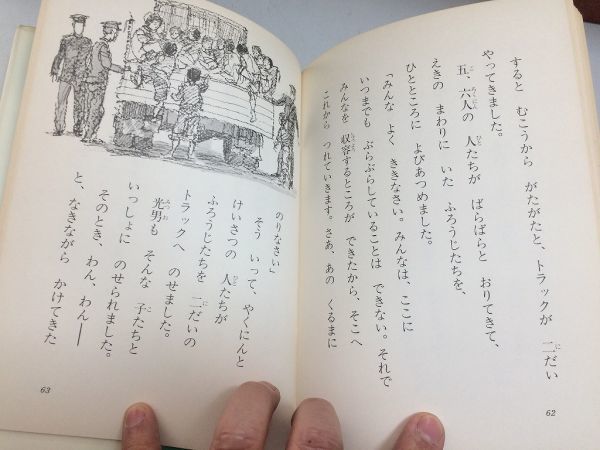 すると むこうから がたがたと、トラックが 二だい
やってきました。
五、六人の 人たちが ばらばらと おりてきて、
えきの まわりに いた ふろうじたちを、
ひとところに よびあつめました。
「みんな よく ききなさい。みんなは、ここに
いつまでも ぶらぶらしていることは できない。それで
みんなを 収容するところが できたから、そこへ
これから つれていきます。さあ、あの くるまに
62
のりなさい」
そう いって、やくにんと
けいさつの 人たちが
ふろうじたちを 二だいの
トラックへ のせました。
光男も そんな 子たちと
いっしょに のせられました。
そのとき、わん、わん――
と、なきながら かけてきた
63